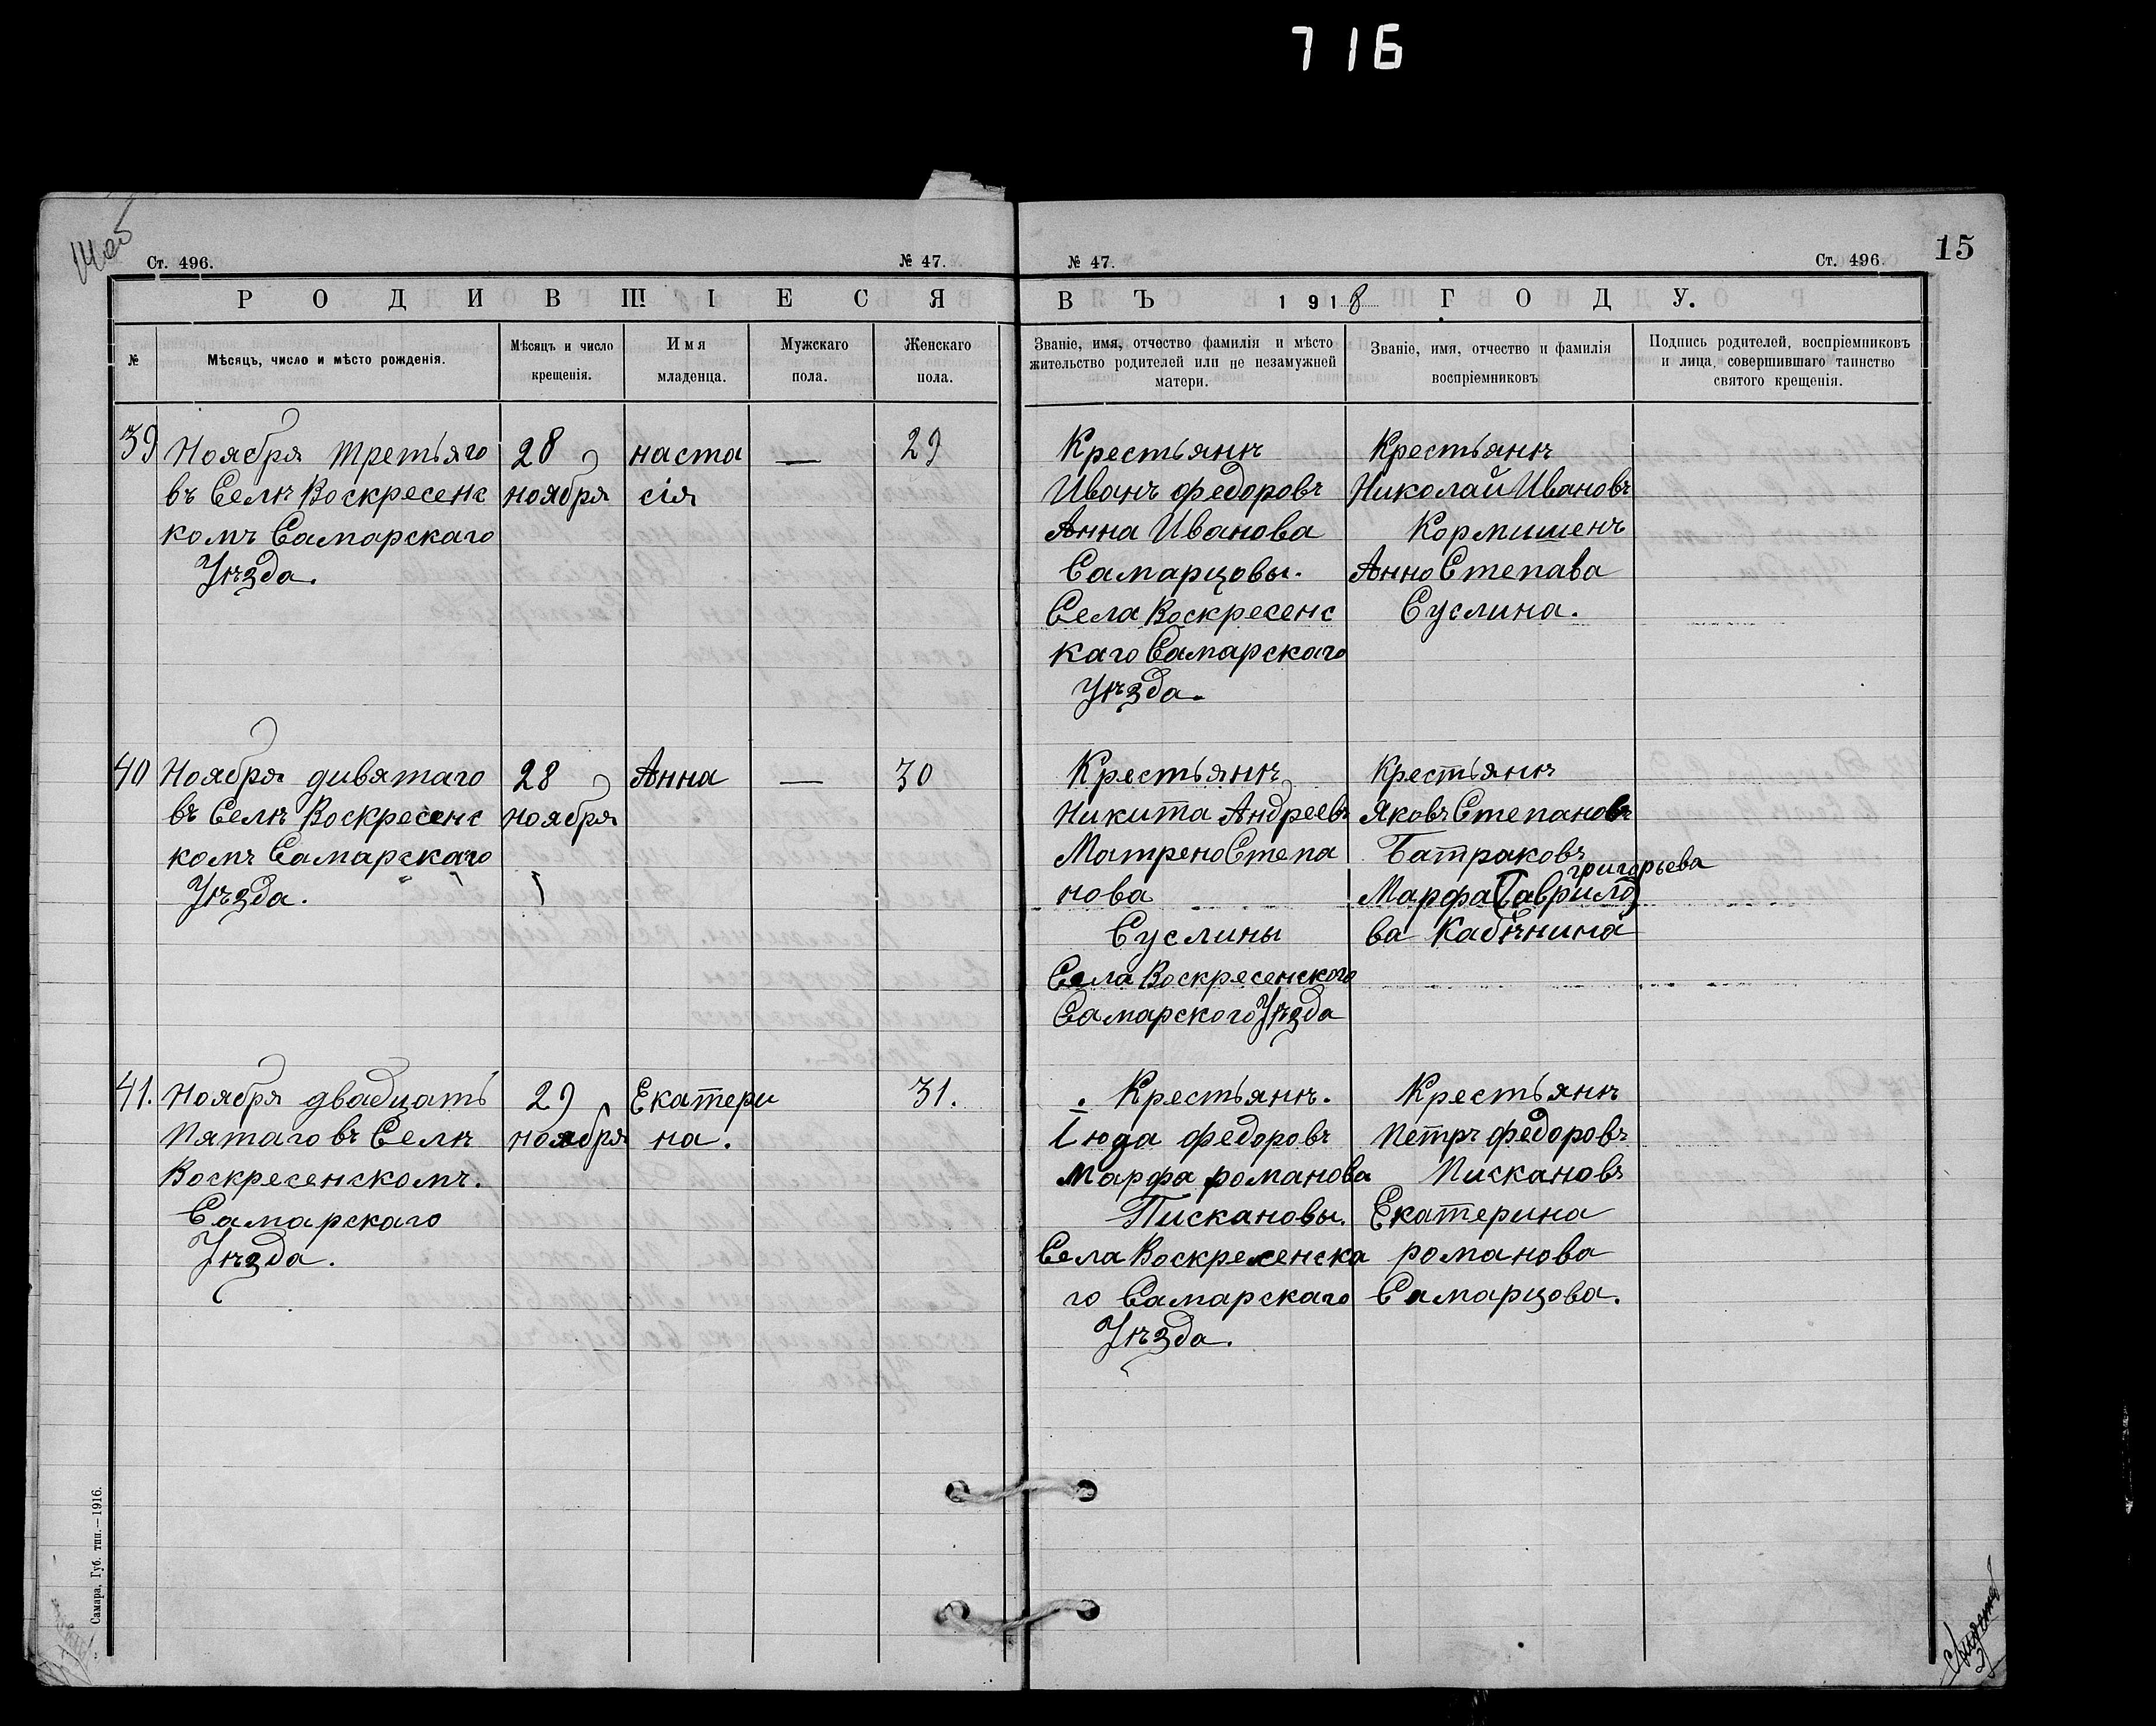 716
14 об
Ст. 496.
№ 47.
№ 47.
Ст. 496.
15
РОДИВШІЕСЯ
ВЪ 1918 ГОДУ.
№
Мѣсяцъ, число и мѣсто рожденія.
Мѣсяцъ и число
крещенія.
Имя
младенца.
Мужскаго
пола.
Женскаго
пола.
Званіе, имя, отчество фамилія и мѣсто
жительство родителей или не незамужней
матери.
Званіе, имя, отчество и фамилія
воспріемниковъ
Подпись родителей, воспріемниковъ
и лица, совершившаго таинство
святого крещенія.
39
Ноября третьяго
въ Селѣ Воскресенс
комъ Самарскаго
Уѣзда.
28
ноября
наста
сія
—
29
Крестьянѣ
Иванъ федоровъ
Анна Иванова
Самарцовы.
Села Воскресенс
каго Самарскаго
Уѣзда.
Крестьянѣ
Николай Ивановъ
Кормишенъ
Анно Степава
Суслина.
40
Ноября дивятаго
въ Селѣ Воскресенс
комъ Самарскаго
Уѣзда.
28
ноября
Анна
—
30
Крестьянѣ
Никита Андреевъ
Матрено Степа
нова
Суслины
Села Воскресенского
Самарского Уѣзда
Крестьянѣ
Яковъ Степановъ
Батраковъ
григорьева
Марфа (Гаврило)
ва Кабѣнина
41.
Ноября двадцать
Пятаго въ Селѣ
Воскресенскомъ.
Самарскаго
Уѣзда.
29
ноября
Екатери
на.
31.
Крестьянѣ.
Іюда федоровъ
Марфа романова
Пискановы.
Села Воскресенска
го Самарскаго
Уѣзда.
Крестьянѣ
Петръ федоровъ
Пискановъ
Екатерина
романова
Самарцова.
Самара, Губ. тип.—1916.